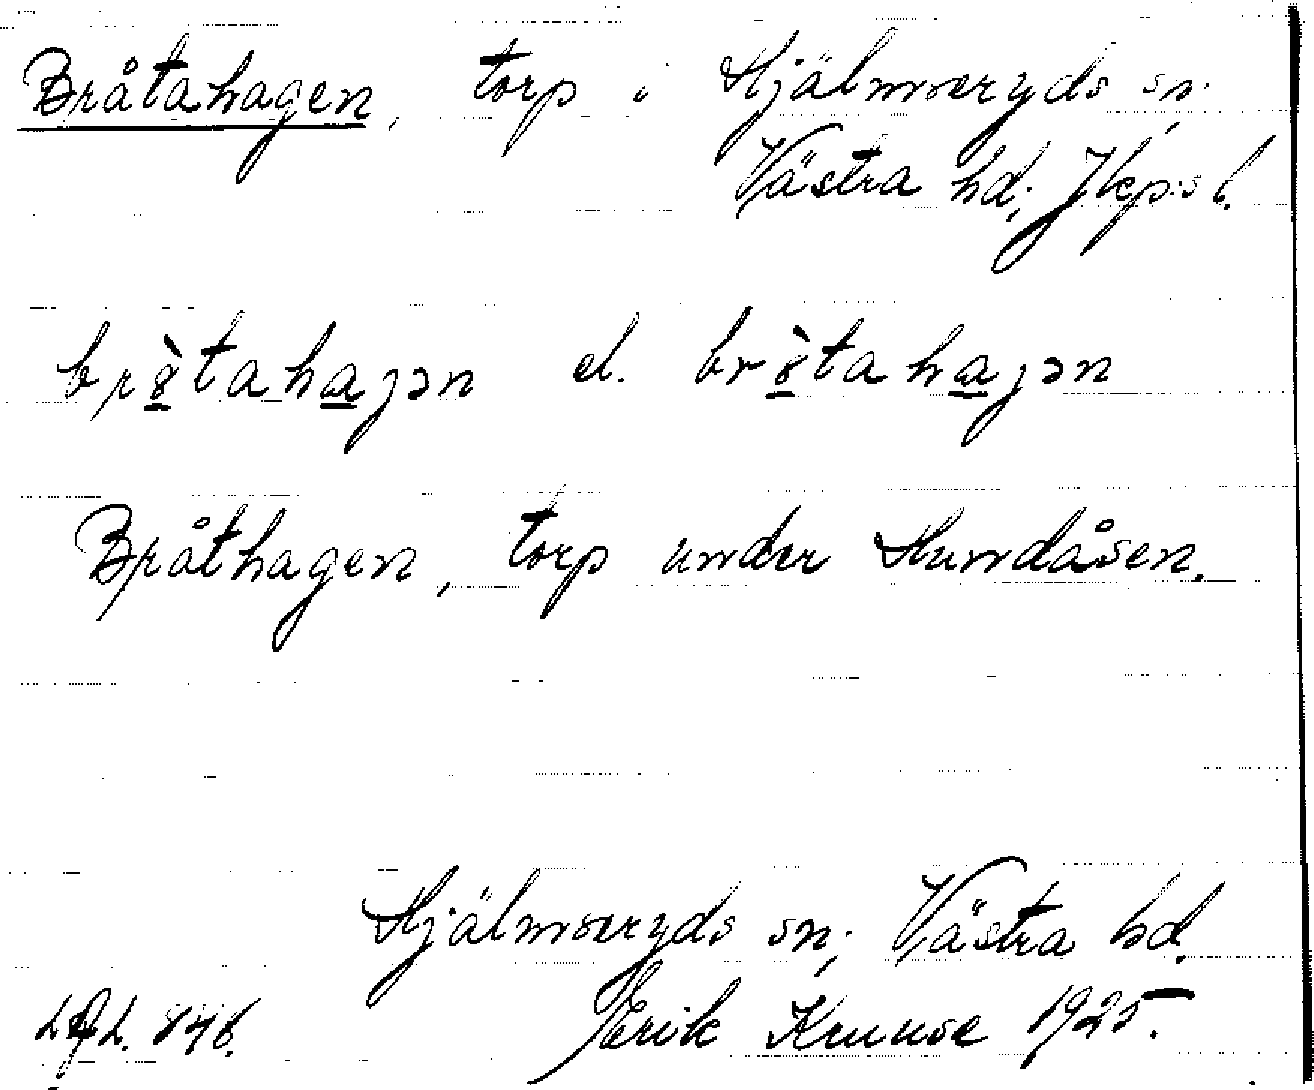 Bråtahagen, torp i Hjälmseryds sn;
Västra hd; Jkp:s l.
br8̀tahaɡən el. br8̀tahaɡən
Bråthagen, torp under Hundåsen.
Hjälmseryds sn; Västra hd.
Erik Kruuse 1925.